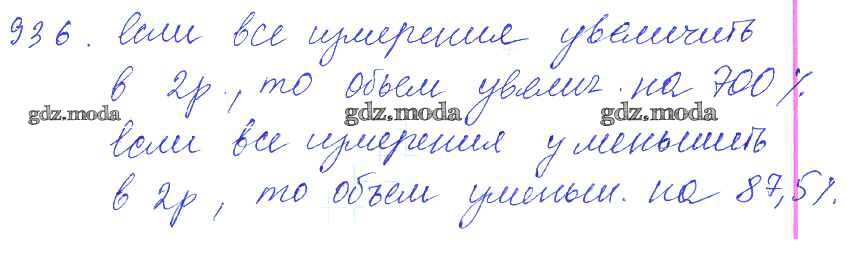 936. Если все измерения увеличить
в 2р., то объем увелич. на 700%.
gdz.moda gdz.moda gdz.moda
Если все измерения уменьшить
в 2р, то объем уменьш. на 87,5%.